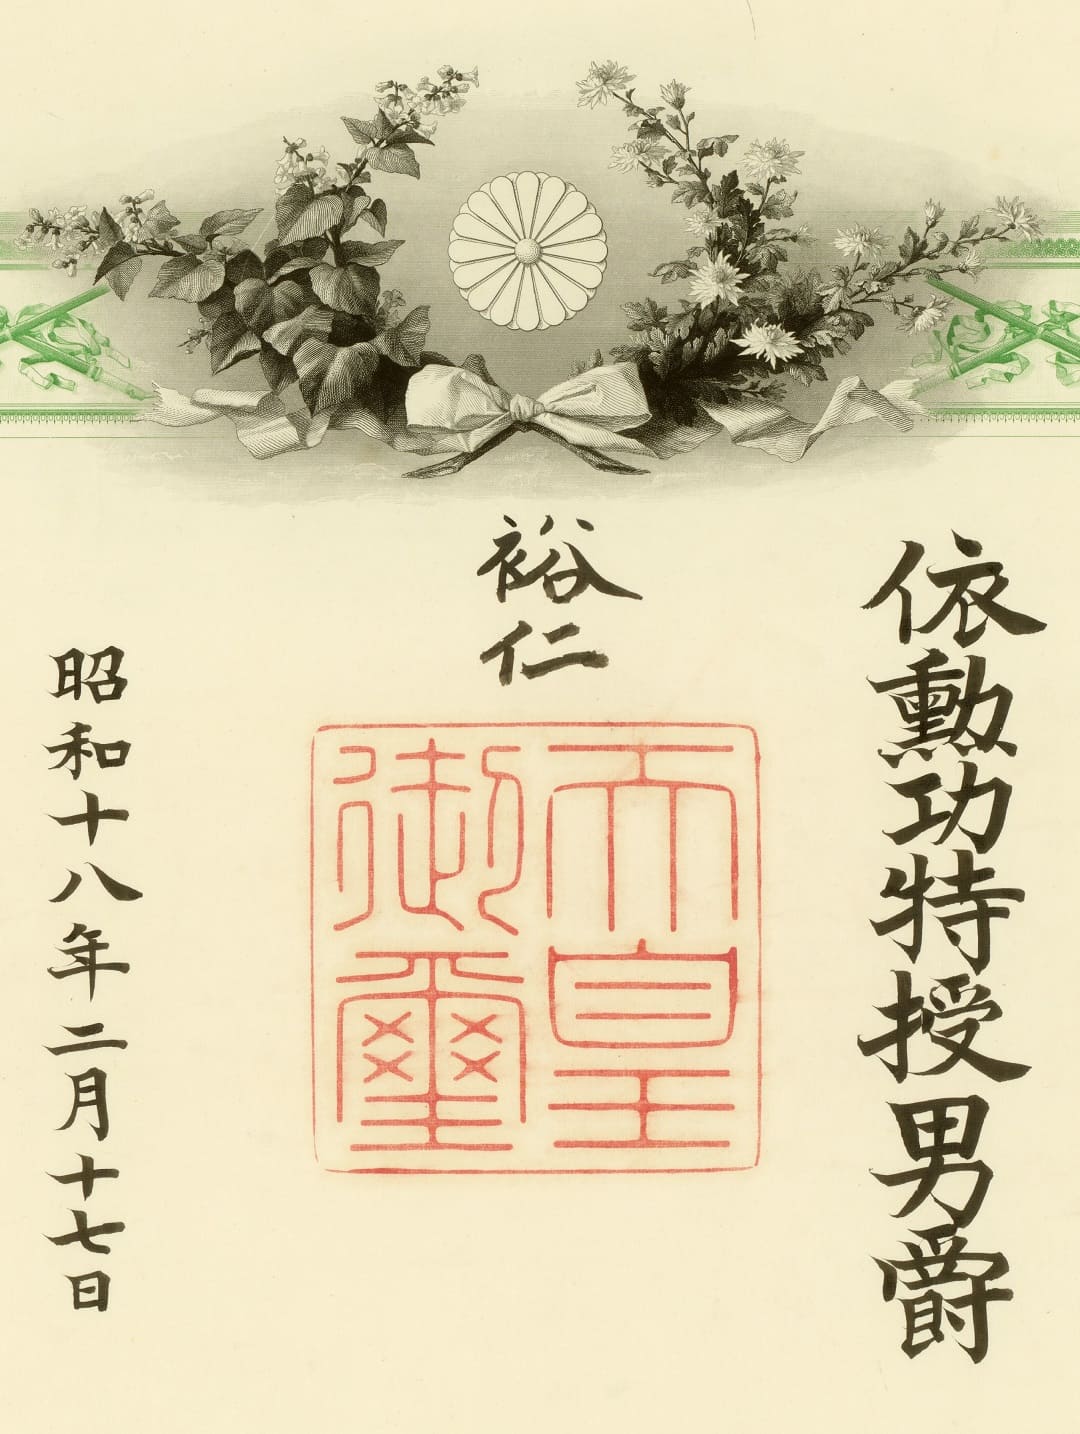 依勲功特授男爵
裕仁
天皇
御璽
昭和十八年二月十七日